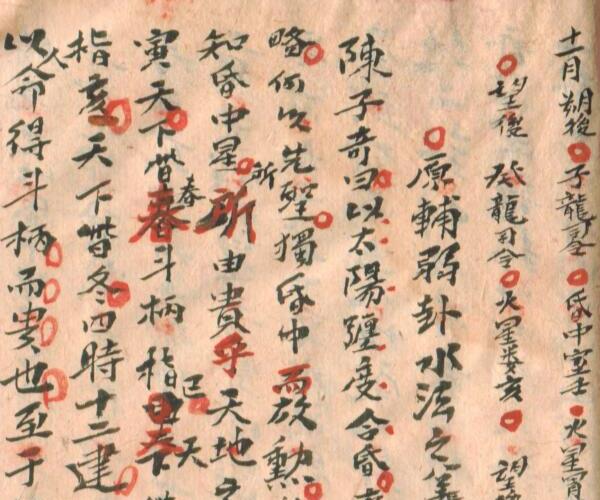 十一月朔後子龍 昏中室 火星
望後癸龍司令火星 亥望
原輔弱卦水法之
陳子奇曰以太陽躔度合昏
略何以先聖獨昏中而放勳
知昏中星所所由貴乎天地之
寅天下皆春春斗柄指巳天下
指亥天下皆冬四時十二建
以人命得斗柄而貴也至于